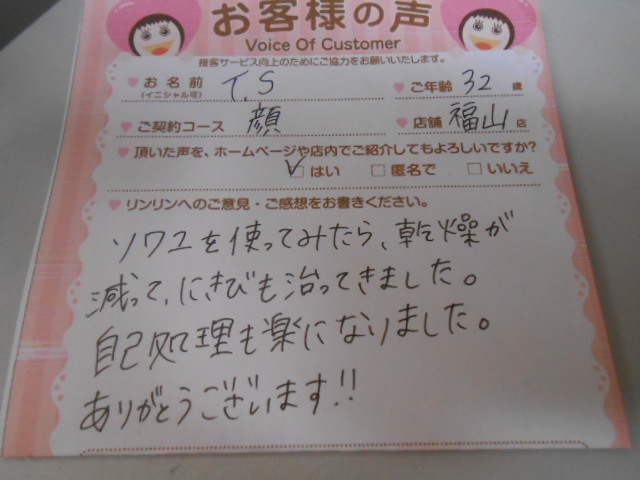 お客様の声
Voice Of Customer
接客サービス向上のためにご協力をお願いいたします。
お名前 T.S ご年齢 32 歳
(イニシャル可)
ご契約コース 顔 店舗 福山 店
頂いた声を、ホームページや店内でご紹介してもよろしいですか?
はい 匿名で いいえ
リンリンへのご意見・ご感想をお書きください。
ソワユを使ってみたら、乾燥が
減って、にきびも治ってきました。
自己処理も楽になりました。
ありがとうございます!!